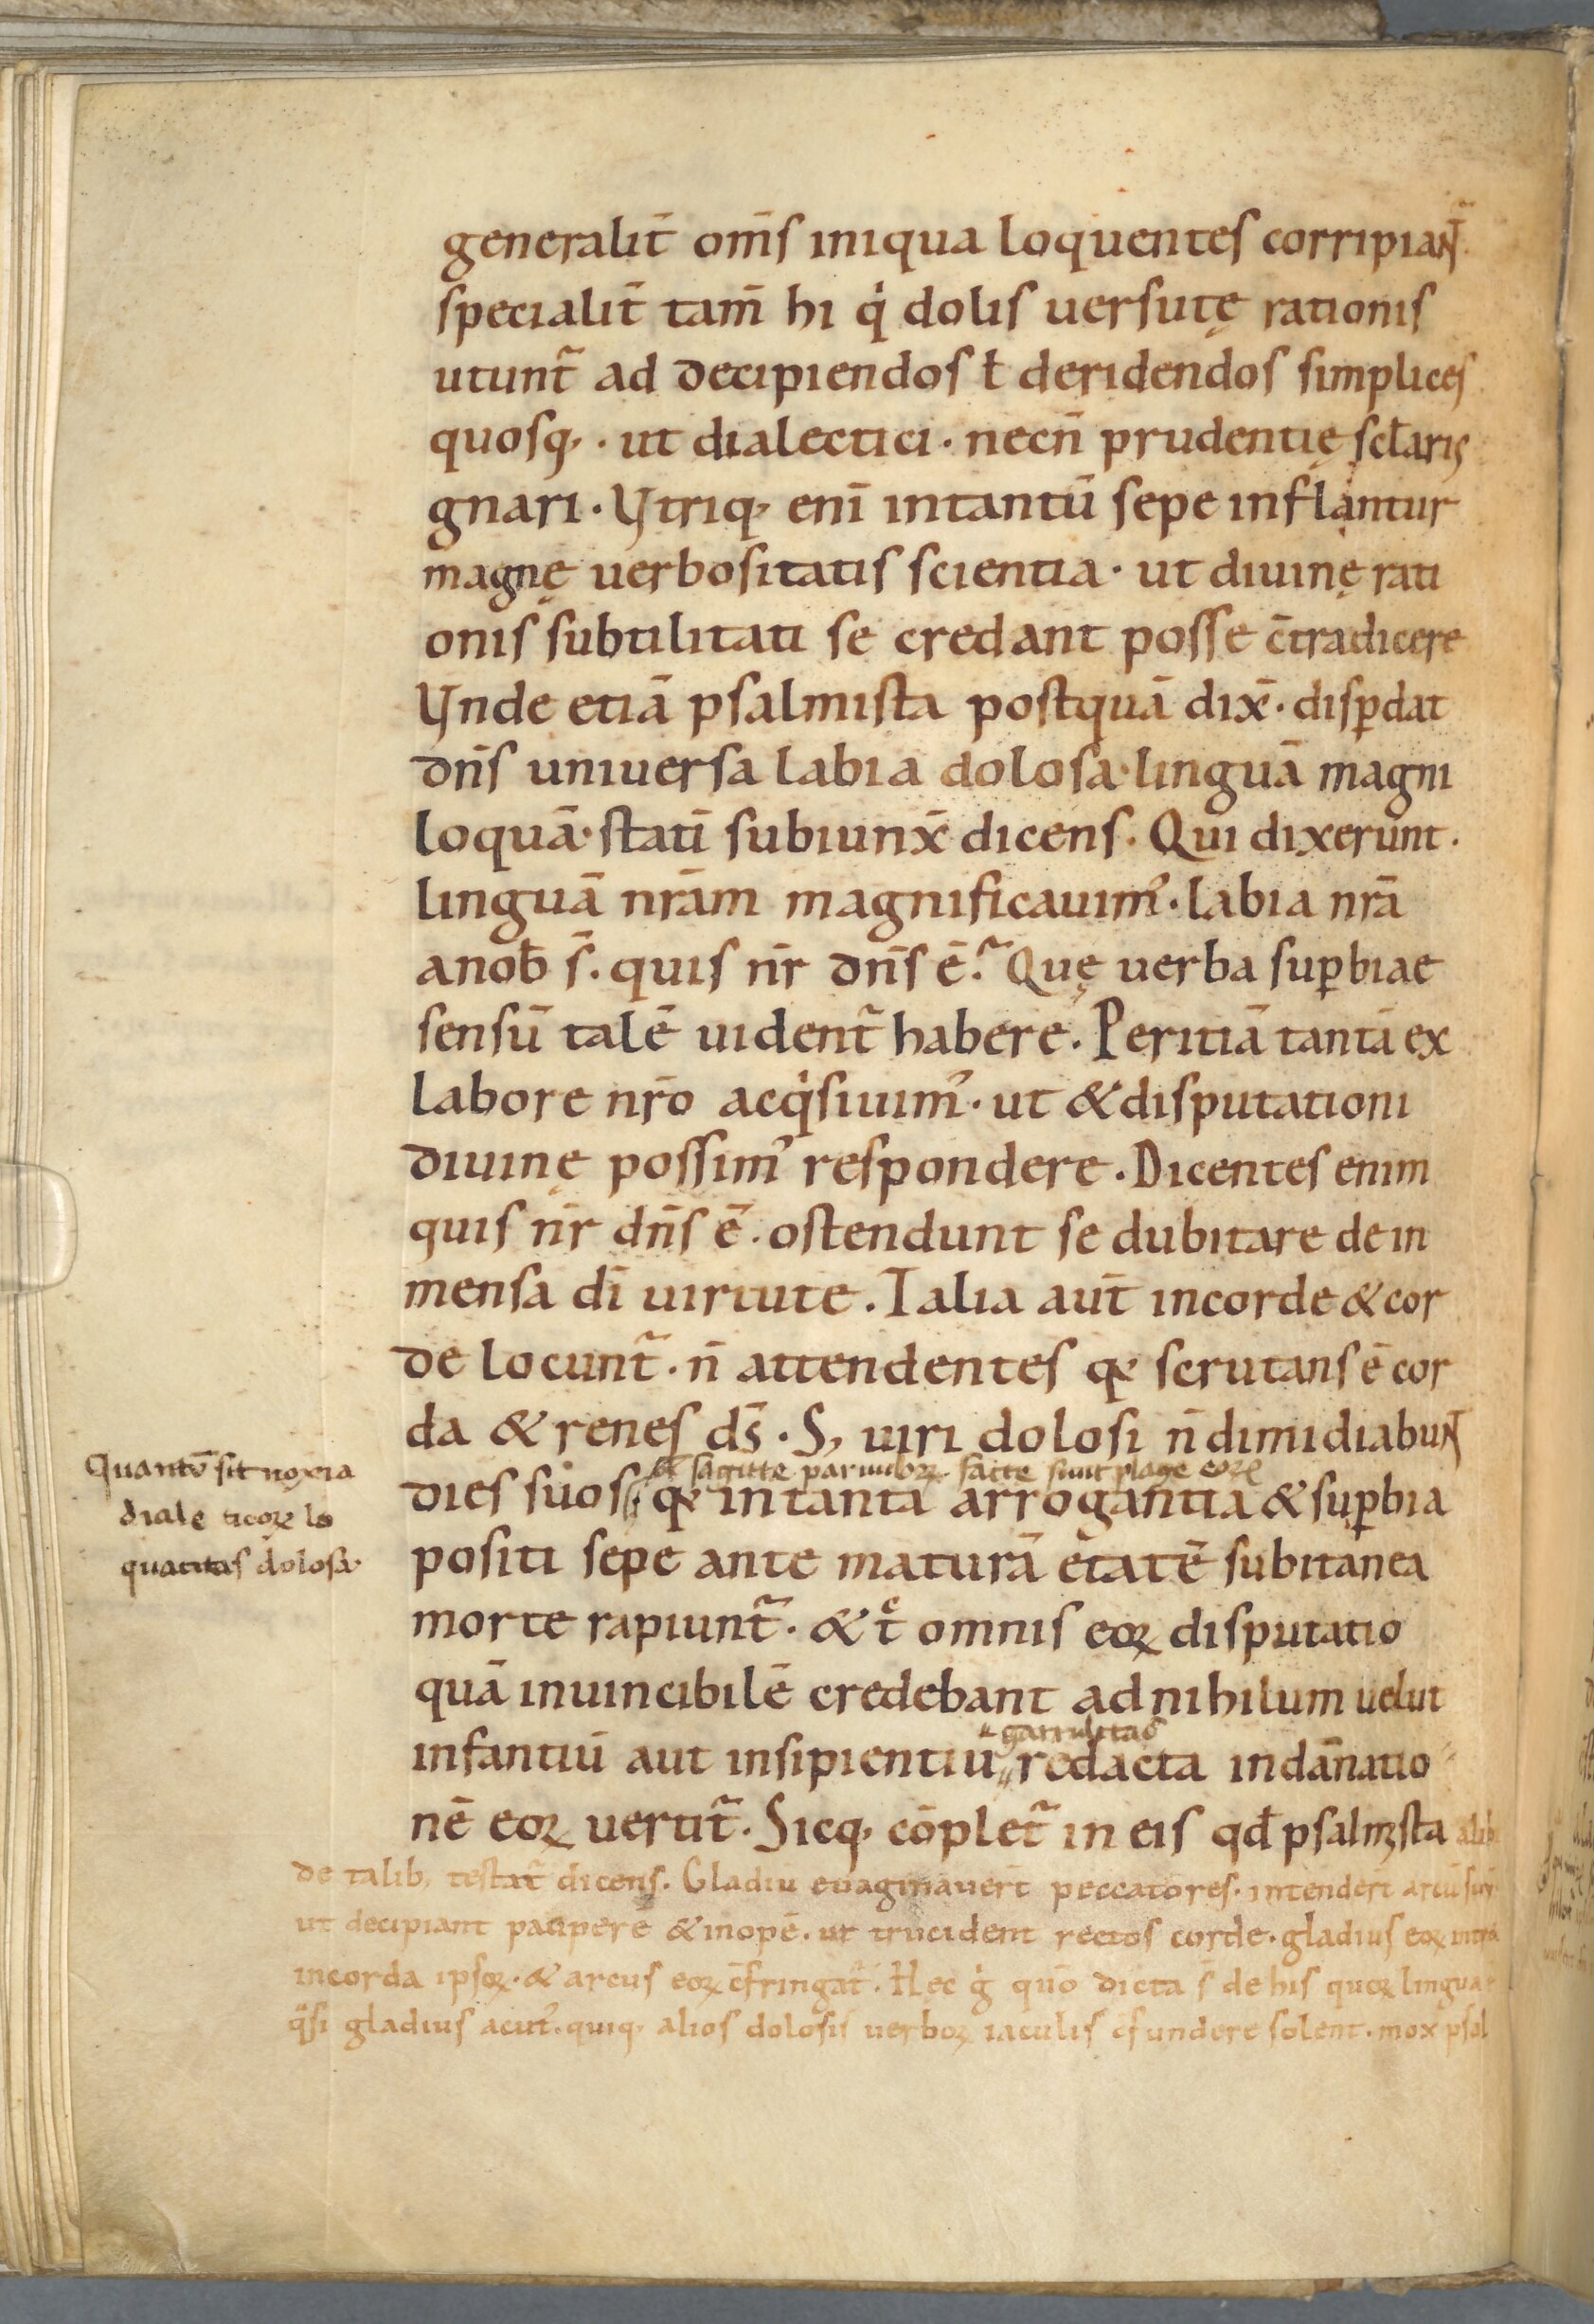 generalit̄ om̄s iniqua loquentes corripiant᷑
specialit̄ tam̄ hi qͥ dolis uersutę rationis
utunt᷑ ad decipiendos ł deridendos simplices
quosq; · ut dialectici · necn̄ prudentię scl̄aris
gnari · Vtriq; eni̅ intantū sepe inflantur
magnę uerbositatis scientia · ut diuinę rati
onis subtilitati se credant posse c̄tradicere
Vnde etiā psalmista postquā dix̄ · disꝑdat
dn̄s uniuersa labia dolosa · linguā magni
loquā · stati̅ subiunx̄ dicens · Qui dixerunt ·
linguā nr̄am magnificauimꝰ · labia nr̄a
anob̄ s̄ · quis nr̄ dn̄s ē? Quę uerba suꝑbiae
sensū talē uident᷑ habere · Peritiā tantā ex
labore nr̄o acqͥsiuimꝰ · ut & disputationi
diuinę possimꝰ respondere · Dicentes enim
quis nr̄ dn̄s ē · ostendunt se dubitare de in
mensa dī uirtute · Talia aut̄ incorde & cor
de locunt᷑ · n̄ attendentes qꝛ scrutans ē cor
da & renes ds̄ · S; uiri dolosi n̄ dimidiabunt
ł sagitte paruuloꝝ facte sunt plage eoꝝ
dies suos · qꝛ in tanta arrogantia & suꝑbia
positi sepe ante maturā etatē subitanea
morte rapiunt᷑ · & tͨ omnis eoꝝ disputatio
quā inuincibilē credebant ad nihilum uelut
garrulitas
infantiū aut insipientiū redacta indānatio
nē eoꝝ uertit᷑ · Sicq; cōplet᷑ in eis qd̄ psalmista alibi
de talib; testat᷑ dicens · Gladiū euaginauer̄t peccatores · intender̄t arcū suū
ut decipiant pauperē & inopē · ut trucident rectos corde · gladius eoꝝ intra
incorda ipsoꝝ · & arcus eoꝝ c̄fringat᷑ · Hec gͥ quō dicta s̄ de his quoꝝ linguae
qͣsi gladius acutꝰ · quiq; alios dolosis uerboꝝ iaculis c̄fundere solent · mox psal
Quantū sit noxia
diale ticoꝝ lo
quacitas dolosa ·